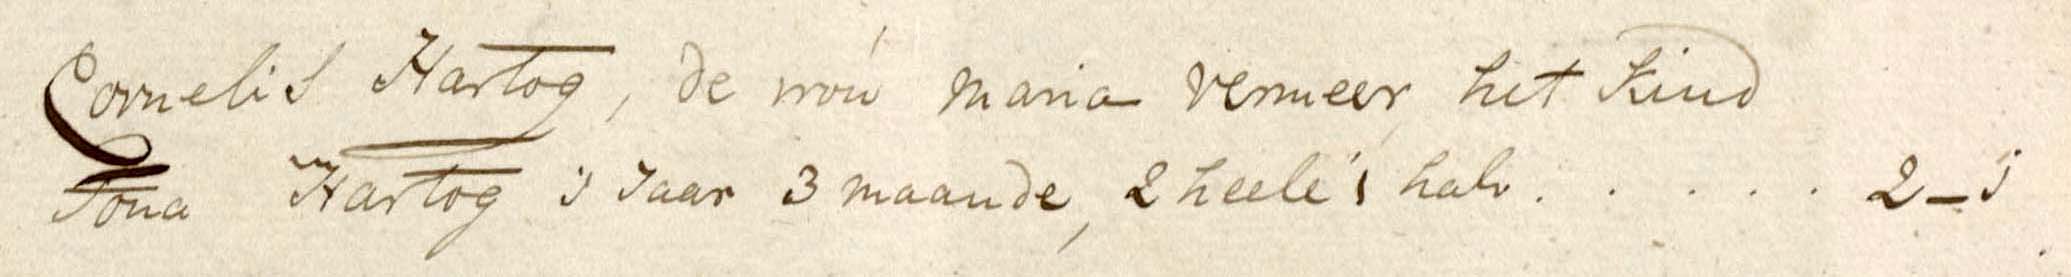 Cornelis Hartog, de vrou maria vermeer, het Kind
Tona Hartog 1 Jaar 3 maande, 2 heele 1 halv . . . . . 2 - 1